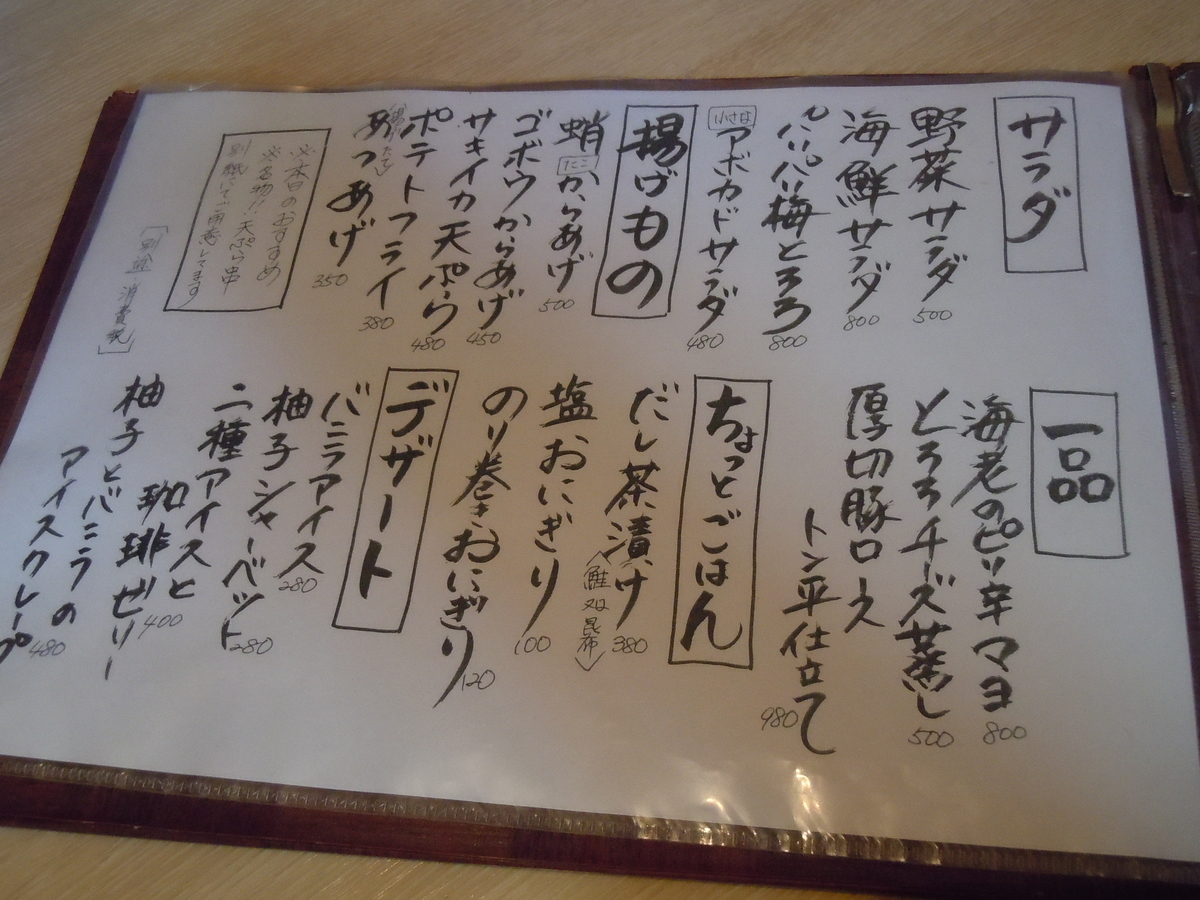 サラダ
野菜サラダ
500
海鮮サラダ
800
パリパリ梅とろろ
800
小さな
アボカドサラダ
480
揚げもの
蛸
たこ
からあげ
500
ゴボウからあげ
450
サキイカ天ぷら
480
ポテトフライ
380
あつあげ
350
※本日のおすすめ
※名物!!天ぷら串
別紙にてご用意してます
[別途 消費税]
一品
海老のピリ辛マヨ
800
とろろチーズ蒸し
500
厚切豚ロース
トン平仕立て
980
ちょっとごはん
だし茶漬け
380
<鮭又は昆布>
塩おにぎり
100
のり巻きおにぎり
120
デザート
バニラアイス
280
柚子シャーベット
280
二種アイスと
珈琲ゼリー
400
柚子とバニラの
アイスクレープ
480